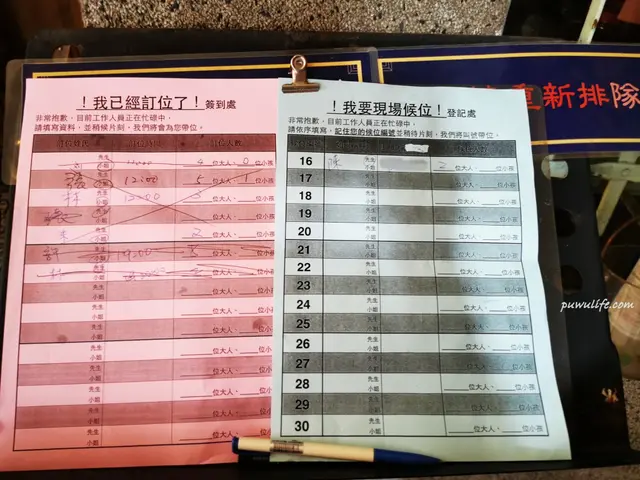 ！我已經訂位了！ 簽到處
非常抱歉，目前工作人員正在忙碌中，
請填寫資料，並稍候片刻，我們將會為您帶位。
先生
小姐 11:00 4 位大人、0 位小孩
張 先生
小姐 12:00 5 位大人、1 位小孩
林 先生
小姐 12:00 位大人、 位小孩
先生
小姐 位大人、 位小孩
先生
小姐 2 位大人、 位小孩
許 先生
小姐 5 位大人、 位小孩
林 先生
小姐 位大人、 位小孩
先生
小姐 位大人、 位小孩
先生
小姐 位大人、 位小孩
先生
小姐 位大人、 位小孩
先生
小姐 位大人、 位小孩
先生
小姐 位大人、 位小孩
先生
小姐 位大人、 位小孩
先生
小姐 位大人、 位小孩
先生
小姐 位大人、 位小孩
！我要現場候位！ 登記處
非常抱歉，目前工作人員正在忙碌中，
請依序填寫，記住您的候位編號並稍待片刻，我們將叫號帶位。
16 陳 先生
小姐 2 位大人、 位小孩
17 先生
小姐 位大人、 位小孩
18 先生
小姐 位大人、 位小孩
19 先生
小姐 位大人、 位小孩
20 先生
小姐 位大人、 位小孩
21 先生
小姐 位大人、 位小孩
22 先生
小姐 位大人、 位小孩
23 先生
小姐 位大人、 位小孩
24 先生
小姐 位大人、 位小孩
25 先生
小姐 位大人、 位小孩
26 先生
小姐 位大人、 位小孩
27 先生
小姐 位大人、 位小孩
28 先生
小姐 位大人、 位小孩
29 先生
小姐 位大人、 位小孩
30 先生
小姐 位大人、 位小孩
重新排隊
puwulife.com